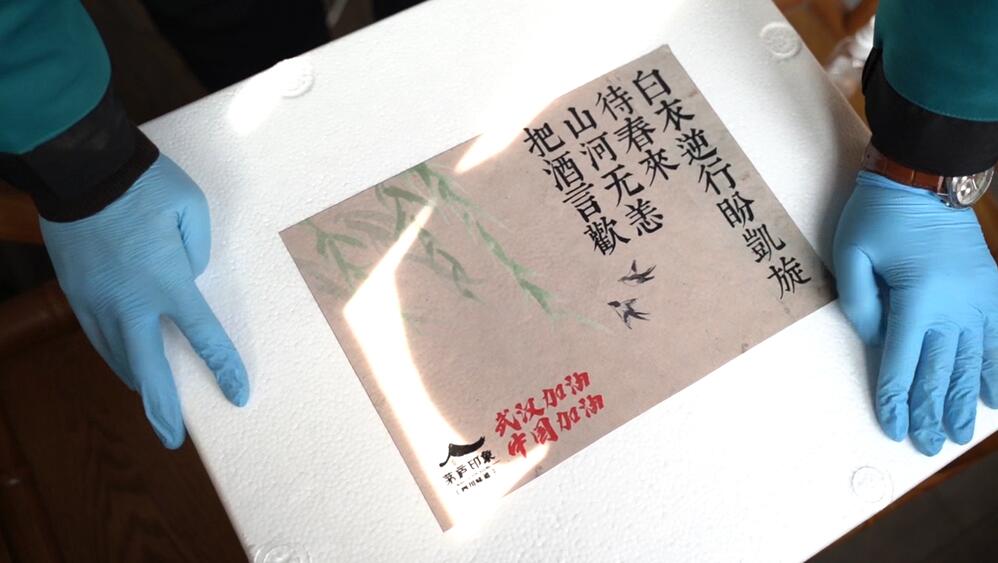 白衣逆行盼凱旋
待春來
山河无恙
把酒言歡
武汉加油
中国加油
茅芦印象